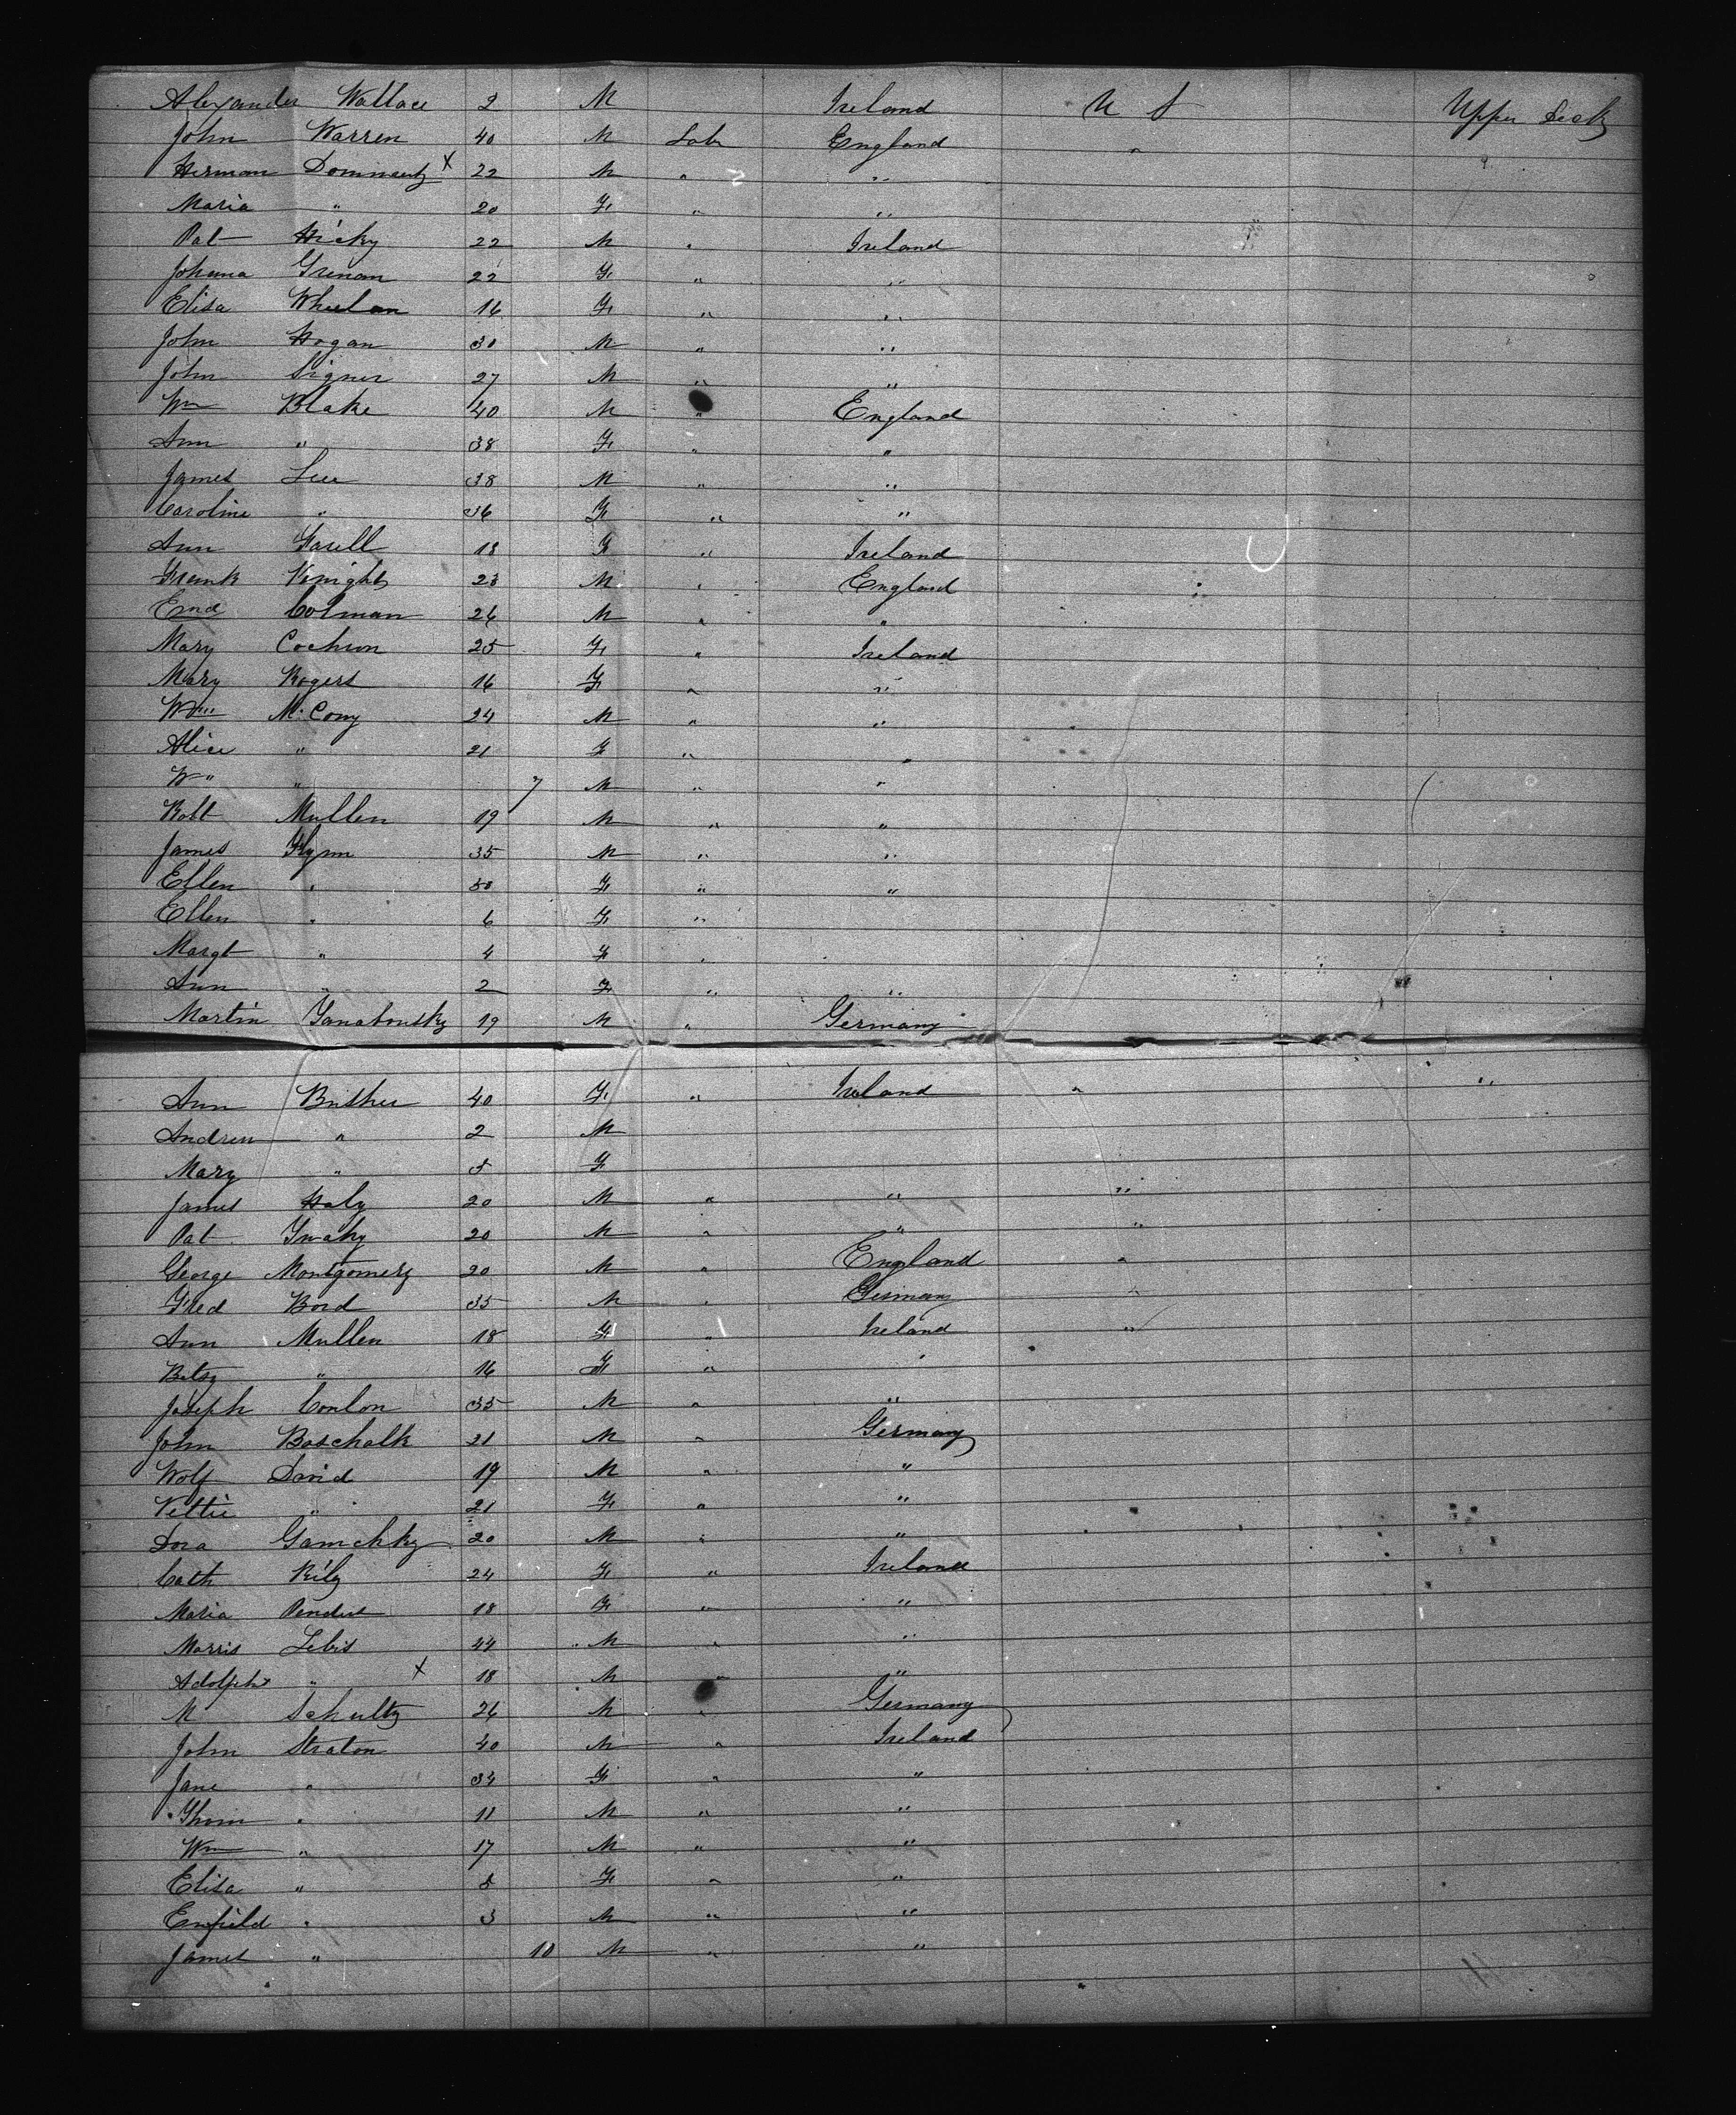 Alexander Wallace 2 M Ireland U S Upper Deck
John Warren 40 M Labr England "
Herman Domnautz x 22 M " "
Maria " 20 F " "
Pat Hicky 22 M " Ireland
Johana Grenan 22 F " "
Elisa Whelan 16 F " "
John Hogan 30 M " "
John Signer 27 M " "
Wm Blake 40 M " England
Ann " 38 F " "
James Lee 38 M " "
Caroline " 36 F " "
Ann Farell 18 F " Ireland
Frank Knights 23 M " England
Emd Colman 26 M " "
Mary Cochron 25 F " Ireland
Mary Rogers 16 F " "
Wm McCony 24 M " "
Alice " 21 F " "
Wm " 7 M " "
Robt Mullen 19 M " "
James Flynn 35 M " "
Ellen " 30 F " "
Ellen " 6 F "
Margt " 4 F "
Ann " 2 F " "
Martin Yanatousky 19 M " Germany
Ann Busher 40 F " Ireland " "
Andrew " 2 M
Mary " 5 F
James Haly 20 M " " "
Pat 20 M " " "
George Montgomery 20 M " England "
Fred Bord 35 M " Germany "
Ann Mullen 18 F " Ireland "
Betsy " 16 F " "
Joseph Conlon 35 M " "
John Boschalk 21 M " Germany
Wolf David 19 M " "
Nettie " 21 F " "
Dora Gamchky 20 M " "
Cath Rily 24 F " Ireland
Maria 18 F " "
Morris Lebis 44 M " "
Adolph " x 18 M " "
M Schultz 26 M " Germany
John Straton 40 M " Ireland
Jane " 34 F " "
Thom " 11 M " "
Wm " 17 M " "
Elisa " 5 F " "
Enfield " 3 M " "
James " 10 M " "